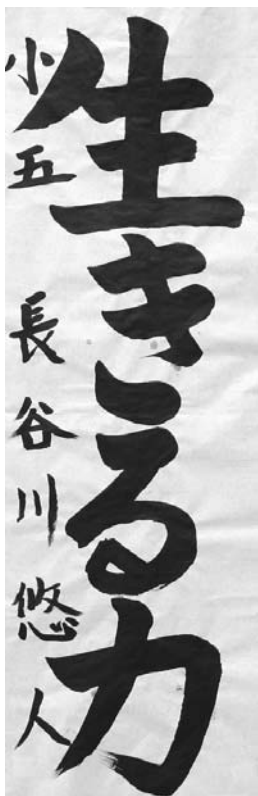 生きる力
小五 長谷川悠人